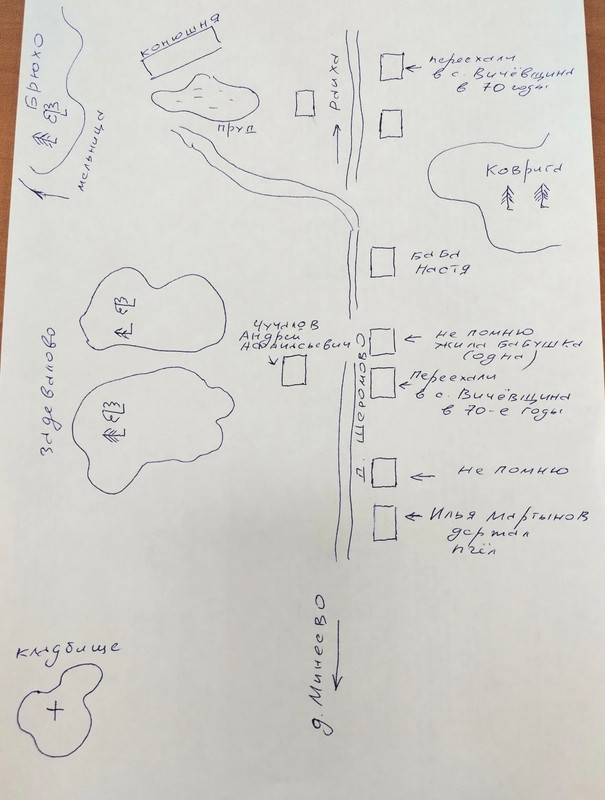 Брюхо
мельница
конюшня
пруд
Раиха
переехали
в с. Вичёвщина
в 70 годы
Коврига
Баба
Настя
Задевалово
Чучалов
Андрей
не помню
жила бабушка
(одна)
д. Шеромово
Переехали
в с. Вичёвщина
в 70-е годы
не помню
Илья Мартынов
держал
пчёл
кладбище
д. Минеево